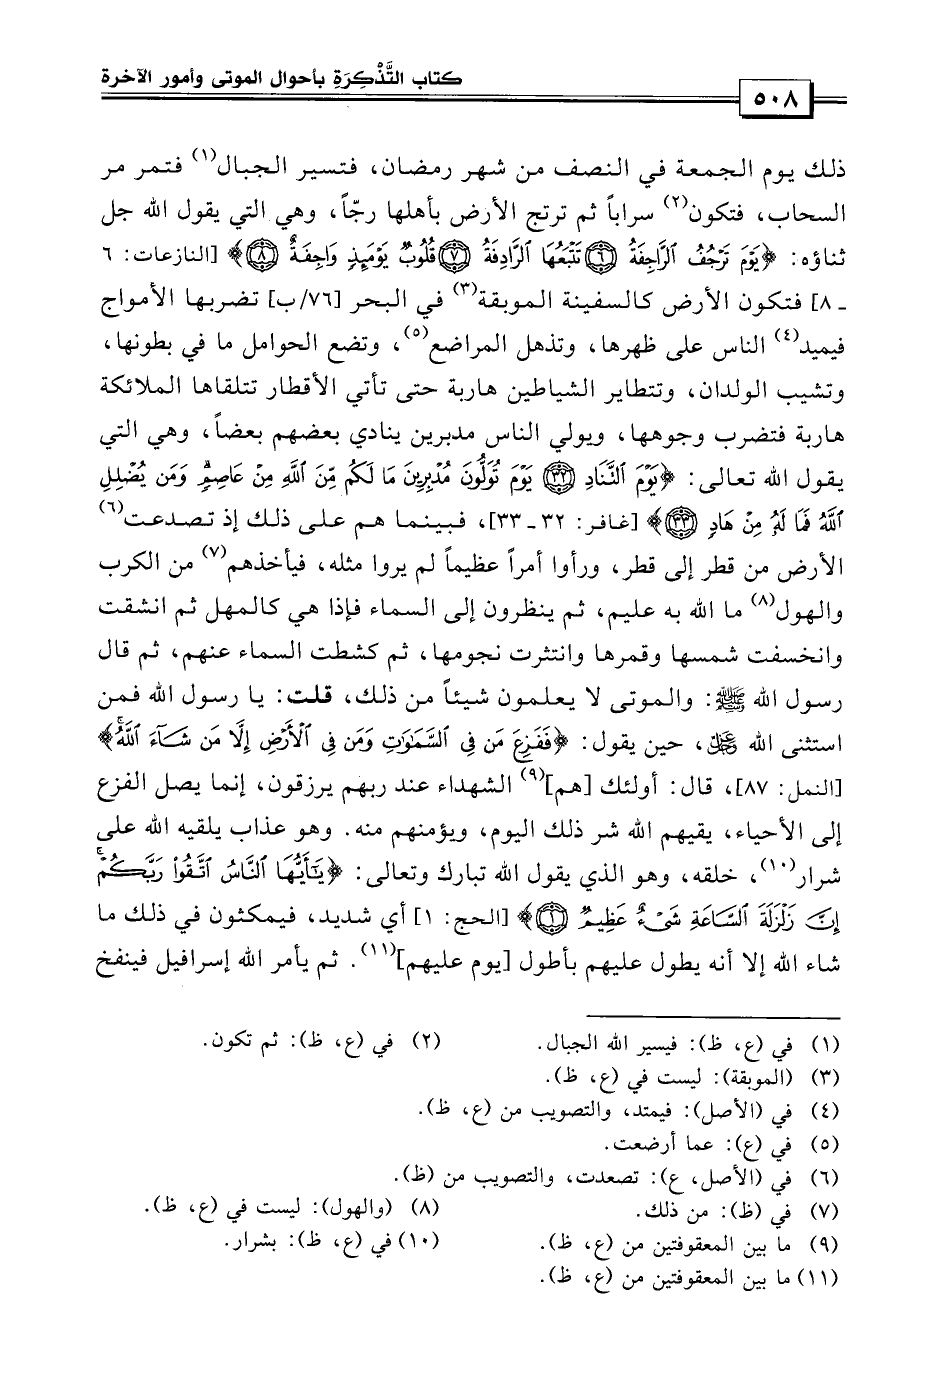 كتاب التَّذْكِرَةِ بأحوال الموتى وأمور الآخرة
٥٠٨
ذلك يوم الجمعة في النصف من شهر رمضان، فتسير الجبال(١) فتمر مر
السحاب، فتكون(٢) سراباً ثم ترتج الأرض بأهلها رجّاً، وهي التي يقول الله جل
ثناؤه: ﴿يَوْمَ تَرْجُفُ ٱلرَّاجِفَةُ ۝٦ تَتْبَعُهَا ٱلرَّادِفَةُ ۝٧ قُلُوبٌ يَوْمَئِذٍ وَاجِفَةٌ ۝٨﴾ [النازعات: ٦
ـ ٨] فتكون الأرض كالسفينة الموبقة(٣) في البحر [٧٦/ب] تضربها الأمواج
فيميد(٤) الناس على ظهرها، وتذهل المراضع(٥)، وتضع الحوامل ما في بطونها،
وتشيب الولدان، وتتطاير الشياطين هاربة حتى تأتي الأقطار تتلقاها الملائكة
هاربة فتضرب وجوهها، ويولي الناس مدبرين ينادي بعضهم بعضاً، وهي التي
يقول الله تعالى: ﴿يَوْمَ ٱلتَّنَادِ ۝٣٢ يَوْمَ تُوَلُّونَ مُدْبِرِينَ مَا لَكُم مِّنَ ٱللَّهِ مِنْ عَاصِمٍ وَمَن يُضْلِلِ
ٱللَّهُ فَمَا لَهُۥ مِنْ هَادٍ ۝٣٣﴾ [غافر: ٣٢ ـ ٣٣]، فبينما هم على ذلك إذ تصدعت(٦)
الأرض من قطر إلى قطر، ورأوا أمراً عظيماً لم يروا مثله، فيأخذهم(٧) من الكرب
والهول(٨) ما الله به عليم، ثم ينظرون إلى السماء فإذا هي كالمهل ثم انشقت
وانخسفت شمسها وقمرها وانتثرت نجومها، ثم كشطت السماء عنهم، ثم قال
رسول الله ﷺ: والموتى لا يعلمون شيئاً من ذلك، قلت: يا رسول الله فمن
استثنى الله ﷻ، حين يقول: ﴿فَفَزِعَ مَن فِى ٱلسَّمَٰوَٰتِ وَمَن فِى ٱلْأَرْضِ إِلَّا مَن شَآءَ ٱللَّهُ﴾
[النمل: ٨٧]، قال: أولئك [هم](٩) الشهداء عند ربهم يرزقون، إنما يصل الفزع
إلى الأحياء، يقيهم الله شر ذلك اليوم، ويؤمنهم منه. وهو عذاب يلقيه الله على
شرار(١٠)، خلقه، وهو الذي يقول الله تبارك وتعالى: ﴿يَٰٓأَيُّهَا ٱلنَّاسُ ٱتَّقُوا۟ رَبَّكُمْ
إِنَّ زَلْزَلَةَ ٱلسَّاعَةِ شَىْءٌ عَظِيمٌ ۝١﴾ [الحج: ١] أي شديد، فيمكثون في ذلك ما
شاء الله إلا أنه يطول عليهم بأطول [يوم عليهم](١١). ثم يأمر الله إسرافيل فينفخ
(١) في (ع، ظ): فيسير الله الجبال. (٢) في (ع، ظ): ثم تكون.
(٣) (الموبقة): ليست في (ع، ظ).
(٤) في (الأصل): فيمتد، والتصويب من (ع، ظ).
(٥) في (ع): عما أرضعت.
(٦) في (الأصل، ع): تصعدت، والتصويب من (ظ).
(٧) في (ظ): من ذلك. (٨) (والهول): ليست في (ع، ظ).
(٩) ما بين المعقوفتين من (ع، ظ). (١٠) في (ع، ظ): بشرار.
(١١) ما بين المعقوفتين من (ع، ظ).